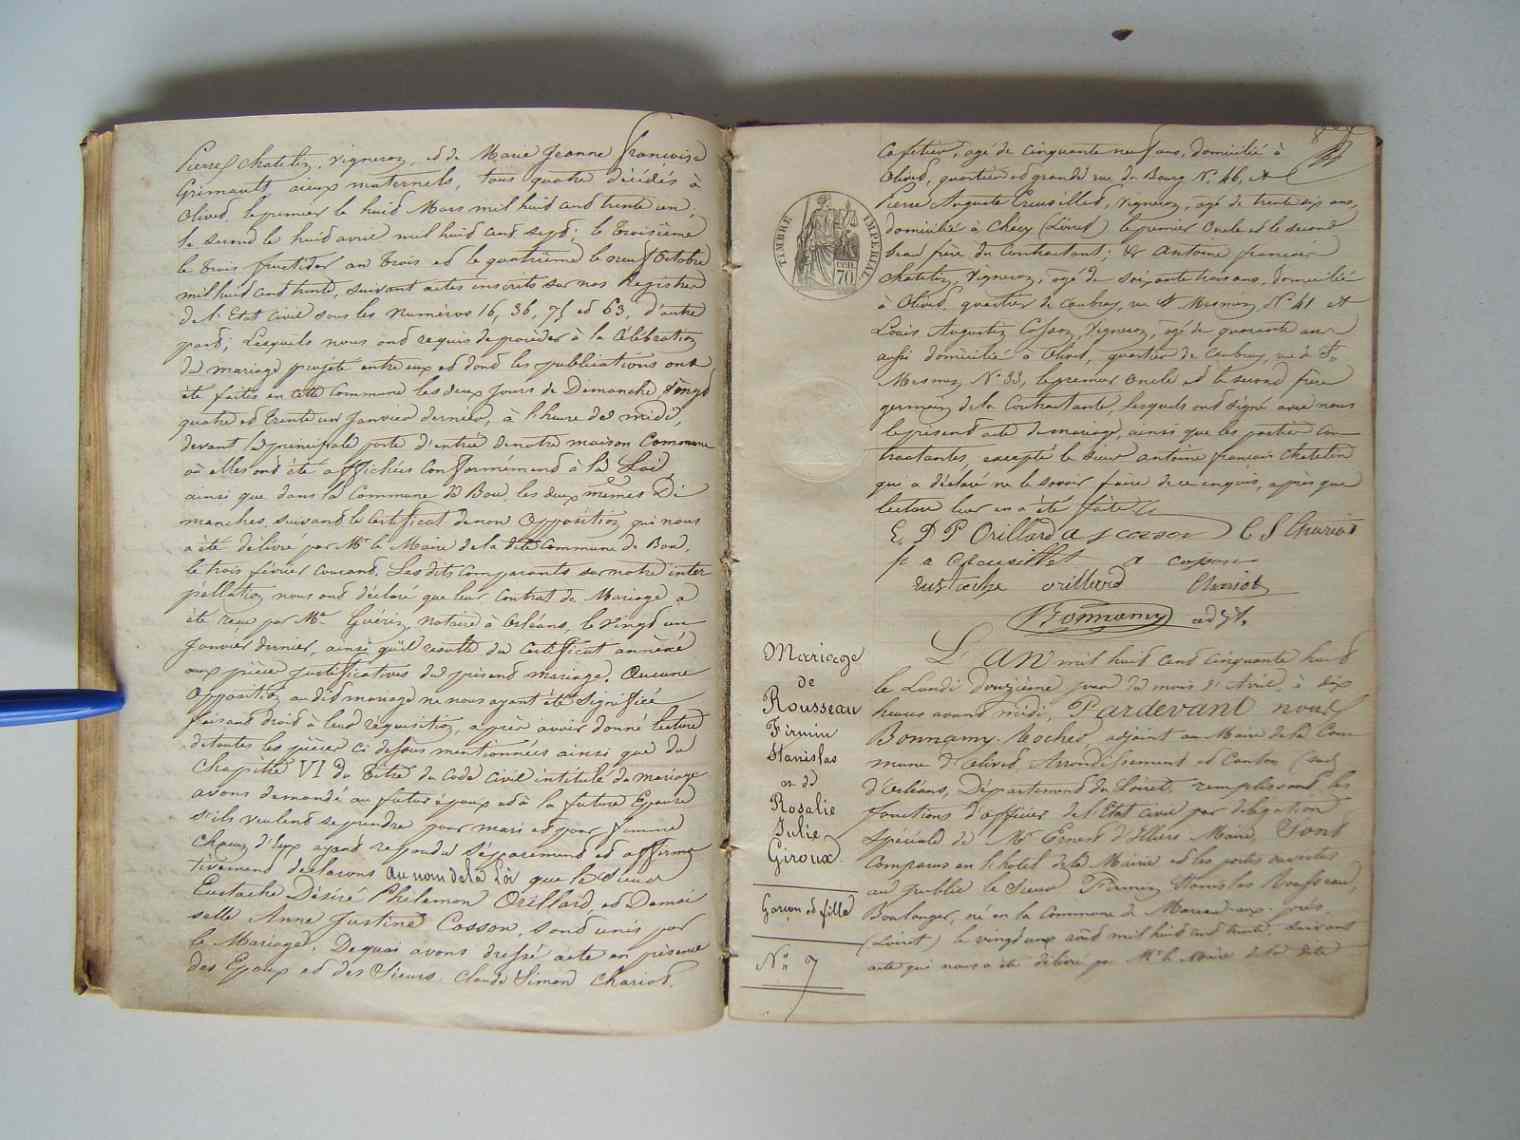 Pierre Chatelin, Vigneron, et de Marie Jeanne françoise
Grimault aïeux maternels, tous quatre décédés à
Olivet, le premier le huit Mars mil huit cent trente un,
le second le huit avril mil huit cent sept; le troisième
le trois fructidor an trois et le quatrième le neuf octobre
mil huit cent trente, suivant actes inscrits sur nos Registres
de l'Etat civil sous les numéros 16, 36, 75 et 63, d'autre
part; Lesquels nous ont requis de procéder à la Célébration
du mariage projeté entre eux et dont les publications ont
été faites en cette Commune les deux jours de Dimanche vingt
quatre et trente un Janvier dernier, à l'heure de midi,
devant la principale porte d'entrée de notre maison Commune
où elles ont été affichées conformément à la Loi,
ainsi que dans la Commune de Bou, les deux mêmes Di
manches, suivant le Certificat de non Opposition qui nous
a été délivré par Mr le Maire de la dite Commune de Bou,
le trois février courant. Les dits Comparants sur notre inter
pellation nous ont déclaré que leur Contrat de Mariage a
été reçu par Me Guérin, notaire à Orléans, le vingt un
Janvier dernier, ainsi qu'il résulte du Certificat annexé
aux pièces justificatives du présent mariage. Aucune
Opposition au dit mariage ne nous ayant été signifiée
faisant droit à leur réquisition, après avoir donné lecture
de toutes les pièces ci dessus mentionnées ainsi que du
Chapitre VI du Titre du Code civil intitulé du mariage
avons demandé au futur époux et à la future Epouse
s'ils veulent se prendre pour mari et pour femme
chacun d'Eux ayant répondu séparément et affirma
tivement déclarons au nom de la Loi que le Sieur
Eustache Désiré Philémon Orillard et Demoi
selle Anne Justine Cosson, sont unis par
le Mariage. De quoi avons dressé acte en présence
des Epoux et des Sieurs. Claude Simon Chariot,
Cafetier, agé de cinquante neuf ans, domicilié à
Olivet, quartier et grande rue du Bourg No 46, et
Pierre Auguste Creusillet, Vigneron, agé de trente six ans,
domicilié à Chécy (Loiret) le premier Oncle et le second
beau frère du Contractant; & Antoine françois
Chatelin, Vigneron, agé de soixante trois ans, domicilié
à Olivet, quartier de Coubray, rue St Mesmin, No 41 et
Louis Augustin Cosson, Vigneron, agé de quarante ans
aussi domicilié à Olivet, quartier de Coubray, rue de St
Mesmin, No 33, le premier Oncle et le second frère
germain de la Contractante, lesquels ont signé avec nous
le présent acte de mariage, ainsi que les parties con
tractantes, excepté le sieur Antoine françois Chatelin
qui a déclaré ne le savoir faire de ce enquis, après que
lecture leur en a été faite
E, D P Orillard a j cosson C S Chariot
p a creusillet a cosson
eustache orillard Chariot
Bonnamy adjt.
TIMBRE IMPÉRIAL
CEN.
70
Mariage
de
Rousseau
Firmin
Stanislas
et de
Rosalie
Julie
Giroux
Garçon et fille
No 7
L'AN mil huit cent cinquante huit
le Lundi douzième jour du mois d'Avril, à dix
heures avant midi, Pardevant nous
Bonnamy-Rocher, adjoint au Maire de la Com
mune d'Olivet Arrondissement et Canton (sud)
d'Orléans, Département du Loiret, remplissant les
fonctions d'officier de l'Etat civil par délégation
spéciale de Mr Ernest d'Illiers Maire, Sont
comparus en l'hôtel de la Mairie et les portes ouvertes
au public le Sieur Firmin Stanislas Rousseau,
Boulanger, né en la Commune de Mareau-aux-prés
(Loiret) le vingt deux août mil huit cent trente, suivant
acte qui nous a été délivré par Mr le Maire de la dite